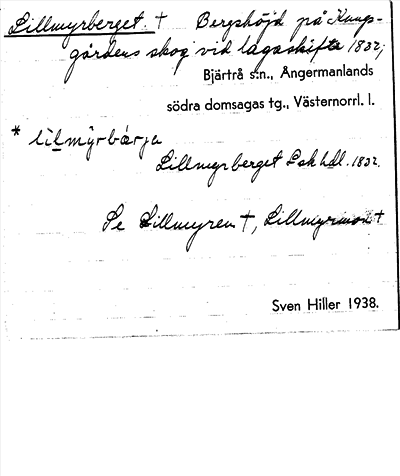 Lillmyrberget. † Bergshöjd på Kungs-
gårdens skog vid lagaskifte 1832;
Bjärtrå s:n., Ångermanlands
södra domsagas tg., Västernorrl. l.
* lìlmỳrbærja
Lillmyrberget Lsk hdl. 1832.
Se Lillmyren †, Lillmyrmon †
Sven Hiller 1938.